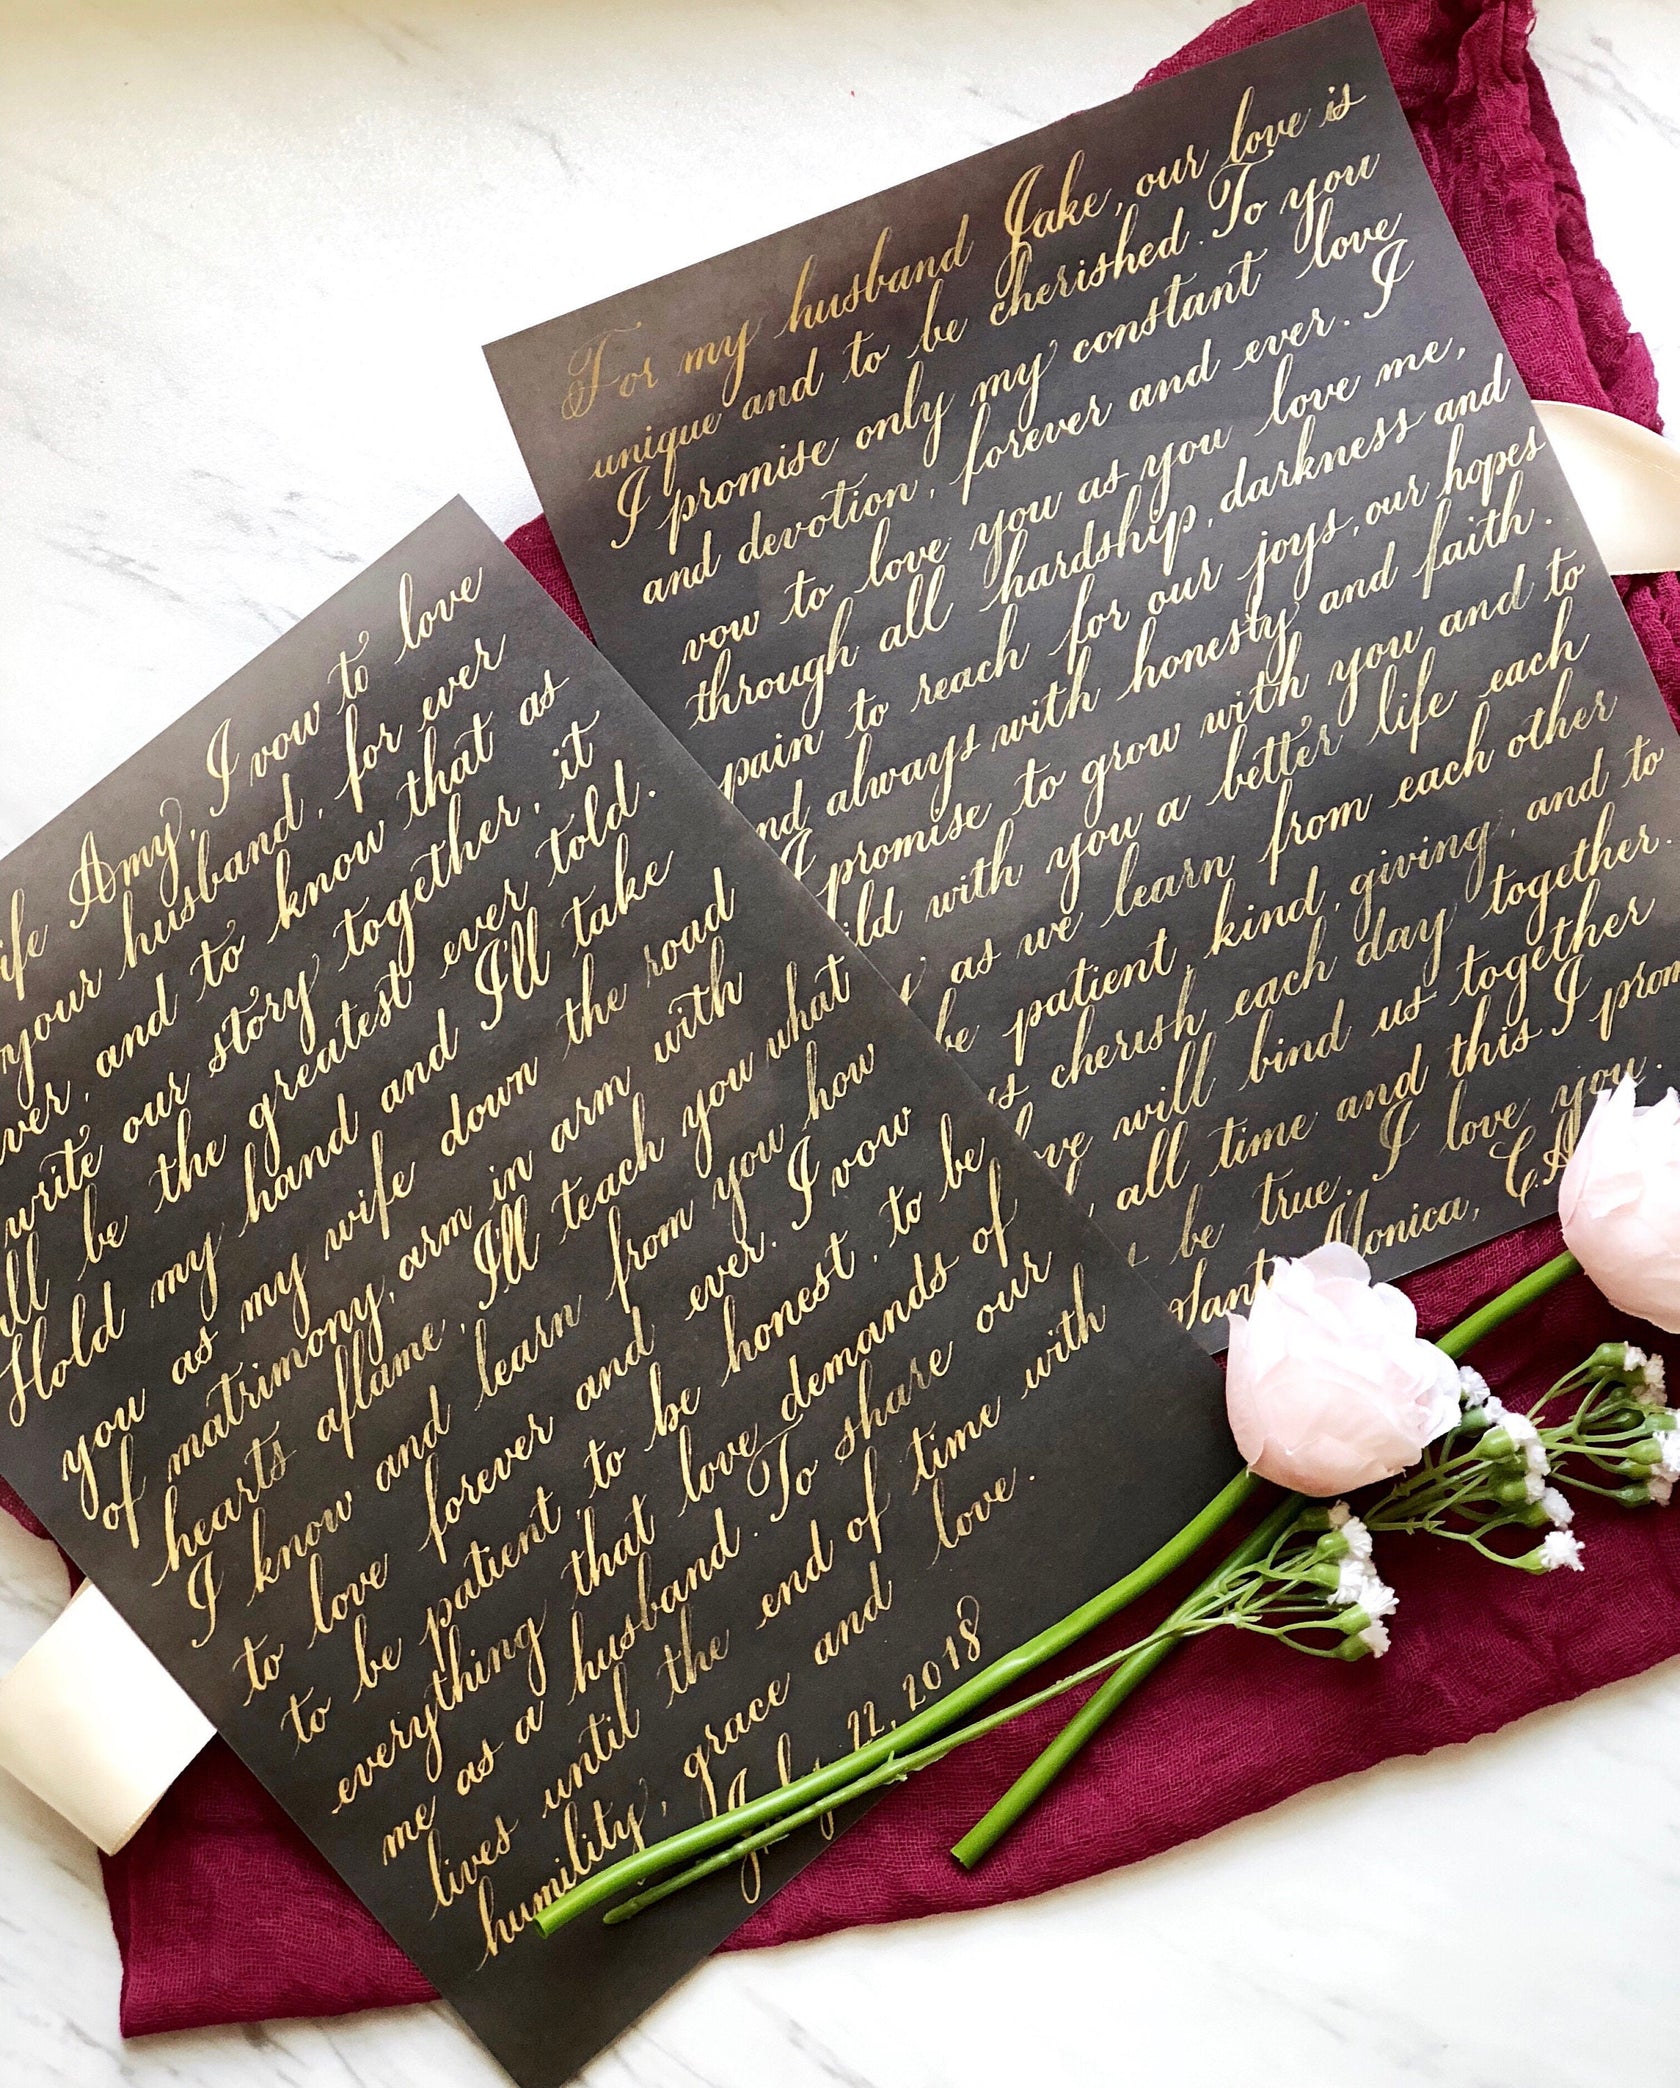 For my husband Jake, our love is
unique and to be cherished. To you
I promise only my constant love
and devotion, forever and ever. I
vow to love you as you love me,
through all hardship, darkness and
pain to reach for our joys, our hopes
and always with honesty and faith.
I promise to grow with you and to
ild with you a better life each
y as we learn from each other
be patient, kind, giving, and to
ys cherish each day together.
ove will bind us together
all time and this I prom
be true. I love you.
Santa Monica, CA
ife Amy, I vow to love
your husband, for ever
ver, and to know that as
write our story together, it
ll be the greatest ever told.
Hold my hand and I'll take
you as my wife down the road
of matrimony, arm in arm with
hearts aflame, I'll teach you what
I know and learn from you how
to love forever and ever. I vow
to be patient, to be honest, to be
everything that love demands of
me as a husband. To share our
lives until the end of time with
humility, grace and love.
July 22, 2018